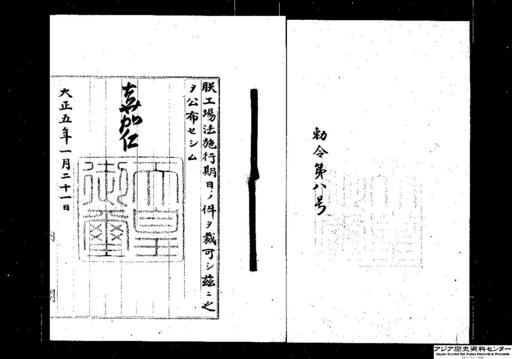 勅令第八号
朕工場法施行期日ノ件ヲ裁可シ茲ニ之
ヲ公布セシム
嘉仁
天皇御璽
大正五年一月二十一日
内閣
アジア歴史資料センター
Japan Center for Asian Historical Records